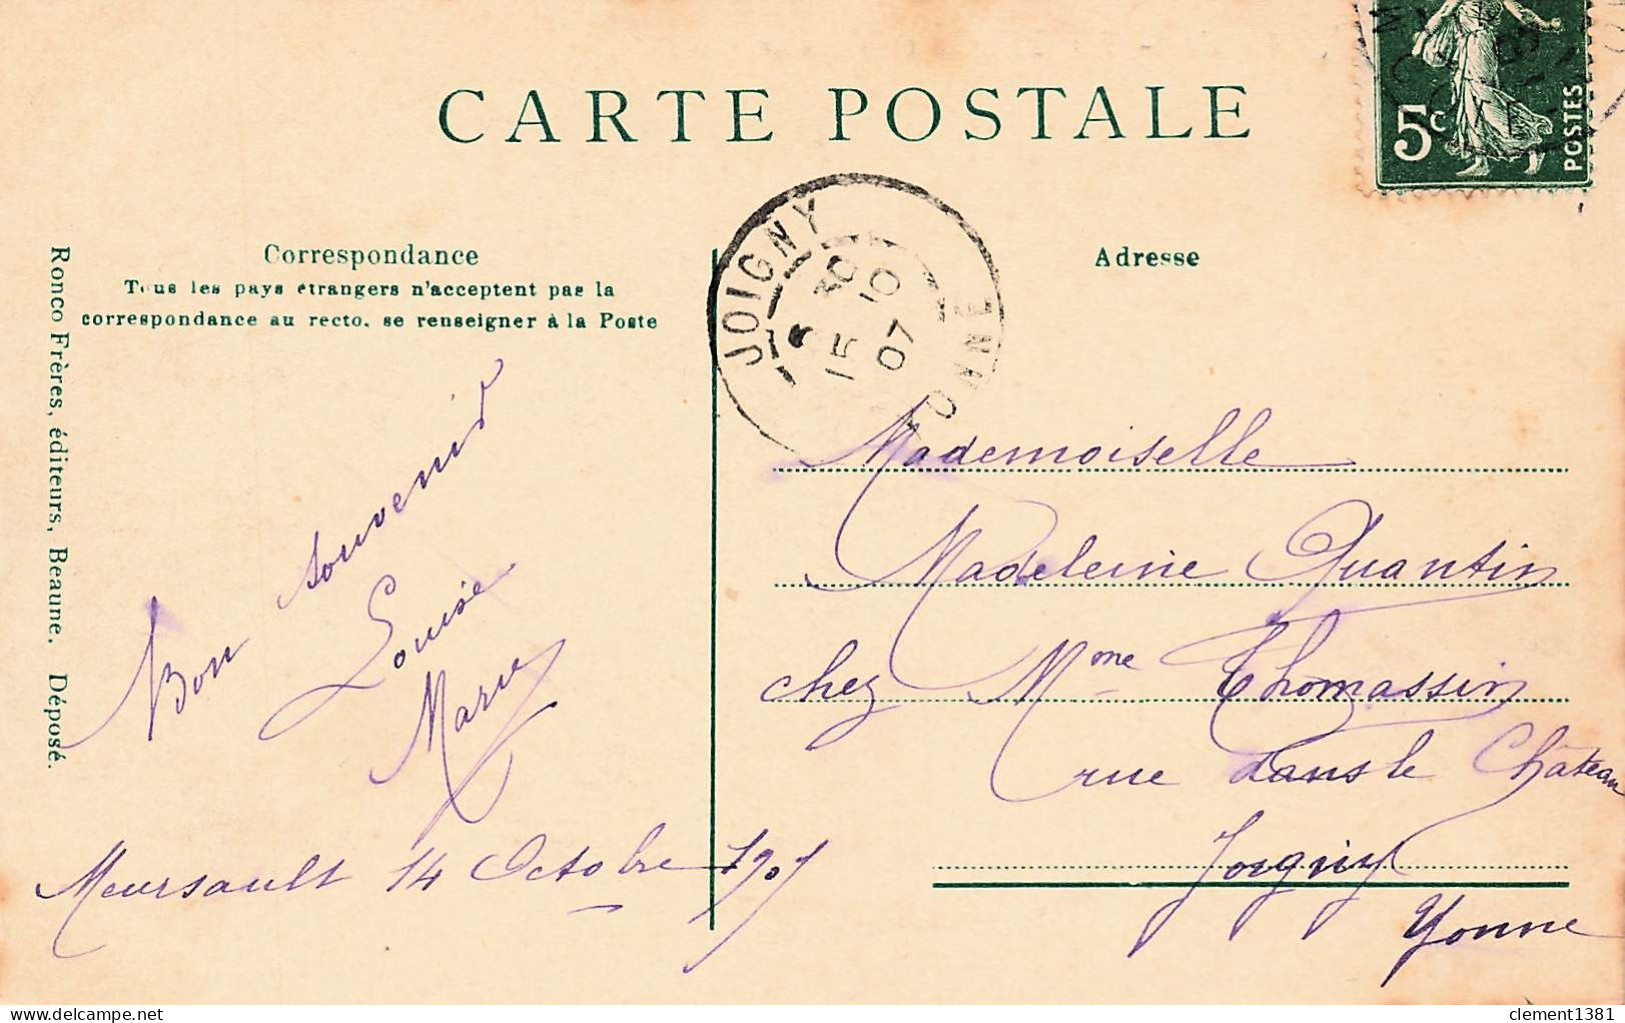 CARTE POSTALE
5c
POSTES
Correspondance
Tous les pays étrangers n'acceptent pas la
correspondance au recto, se renseigner à la Poste
Adresse
JOIGNY
15 10
07
YONNE
Ronco Frères, éditeurs, Beaune. Déposé.
Bon souvenir
Louise
Meursault 14 Octobre 1907
Mademoiselle
Madeleine Quantin
chez Mme Thomassin
rue dans le Château
Joigny
Yonne
www.delcampe.net
clement1381